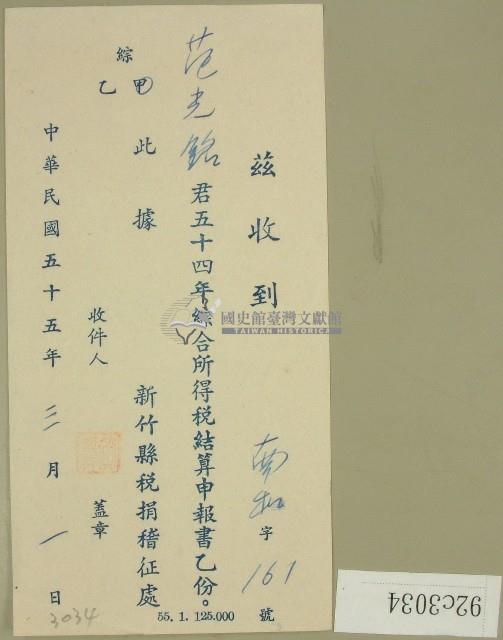 茲收到 南投字161號
范光銘君五十四年綜合所得稅結算申報書乙份。
綜
甲 此據 新竹縣稅捐稽征處
乙
收件人 蓋章
中華民國五十五年三月一日
55. 1. 125.000
3034
國史館臺灣文獻館
TAIWAN HISTORICA
92c3034